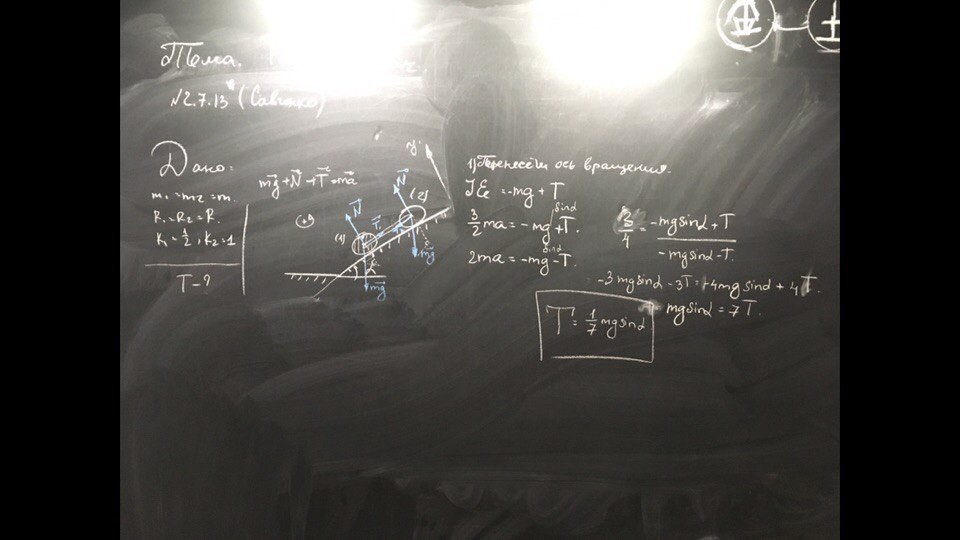 Тема.
№2.7.13* (Савченко)
Дано:
m₁=m₂=m.
R₁=R₂=R.
k₁=1/2, k₂=1
T-?
mg⃗+N⃗+T⃗=ma⃗
y
N⃗
(1)
T⃗
N⃗
(2)
mg⃗
α
mg⃗
1) Перенесём ось вращения.
= -mg + T
sinα
3/2 ma = -mg + T.
sinα
2ma = -mg - T.
3/4 = (-mgsinα + T)/(-mgsinα - T)
-3mgsinα - 3T = -4mgsinα + 4T.
mgsinα = 7T.
T = 1/7 mgsinα